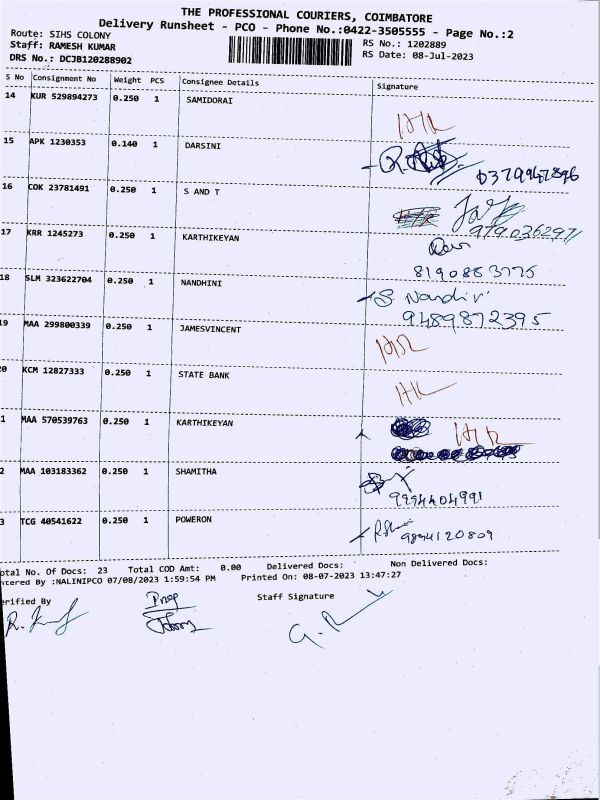 THE PROFESSIONAL COURIERS, COIMBATORE
Delivery Runsheet - PCO - Phone No.:0422-3505555 - Page No.:2
Route: SIHS COLONY
Staff: RAMESH KUMAR
DRS No.: DCJB120288902
RS No.: 1202889
RS Date: 08-Jul-2023
S No Consignment No Weight PCS Consignee Details Signature
14 KUR 529894273 0.250 1 SAMIDORAI
15 APK 1230353 0.140 1 DARSINI
16 COK 23781491 0.250 1 S AND T
9790362971
17 KRR 1245273 0.250 1 KARTHIKEYAN
8190883775
18 SLM 323622704 0.250 1 NANDHINI
S. Nandini
9489872395
9 MAA 299800339 0.250 1 JAMESVINCENT
0 KCM 12827333 0.250 1 STATE BANK
1 MAA 570539763 0.250 1 KARTHIKEYAN
2 MAA 103183362 0.250 1 SHAMITHA
9994404991
3 TCG 40541622 0.250 1 POWERON
9894120809
otal No. Of Docs: 23 Total COD Amt: 0.00 Delivered Docs: Non Delivered Docs:
ntered By :NALINIPCO 07/08/2023 1:59:54 PM Printed On: 08-07-2023 13:47:27
erified By Staff Signature